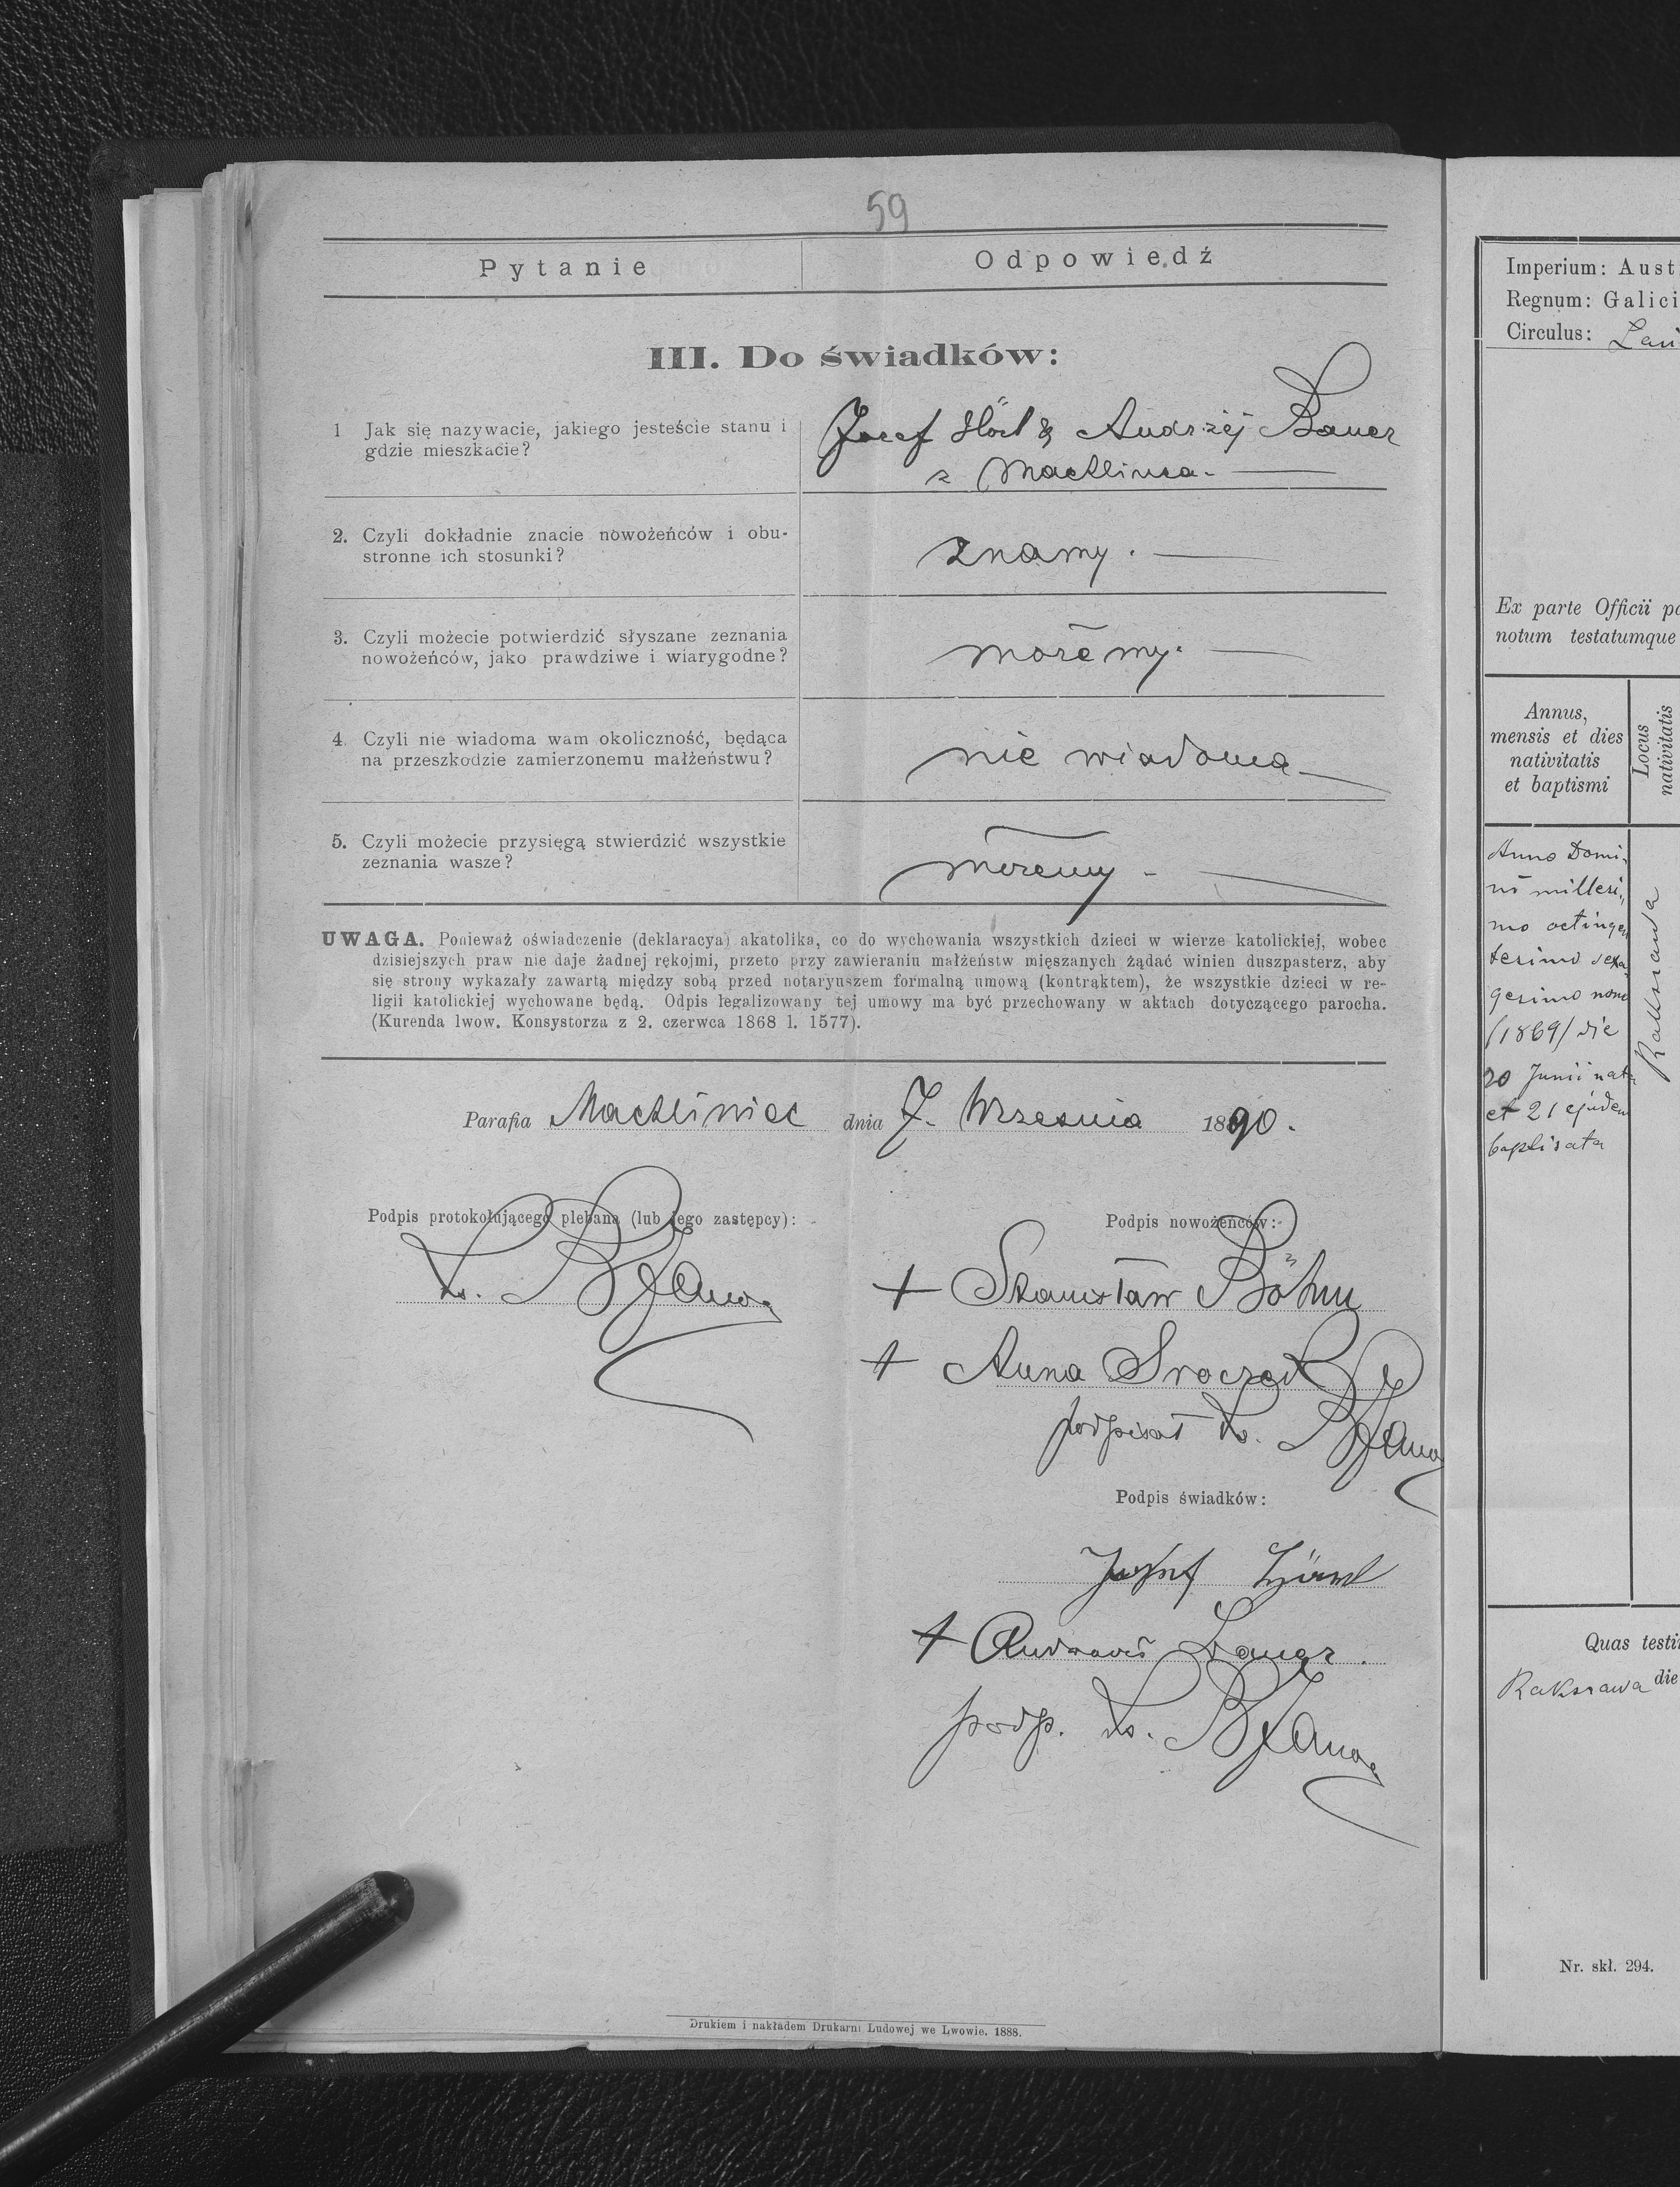 59
Pytanie
Odpowiedź
III. Do świadków:
1 Jak się nazywacie, jakiego jesteście stanu i
gdzie mieszkacie?
Józef Höcl & Andrzéj Bauer
z Machlińca.
2. Czyli dokładnie znacie nowożeńców i obu-
stronne ich stosunki?
znamy.
3. Czyli możecie potwierdzić słyszane zeznania
nowożeńców, jako prawdziwe i wiarygodne?
możemy.
4. Czyli nie wiadoma wam okoliczność, będąca
na przeszkodzie zamierzonemu małżeństwu?
nie wiadoma
5. Czyli możecie przysięgą stwierdzić wszystkie
zeznania wasze?
możemy
UWAGA. Ponieważ oświadczenie (deklaracya) akatolika, co do wychowania wszystkich dzieci w wierze katolickiej, wobec
dzisiejszych praw nie daje żadnej rękojmi, przeto przy zawieraniu małżeństw mięszanych żądać winien duszpasterz, aby
się strony wykazały zawartą między sobą przed notaryuszem formalną umową (kontraktem), że wszystkie dzieci w re-
ligii katolickiej wychowane będą. Odpis legalizowany tej umowy ma być przechowany w aktach dotyczącego parocha.
(Kurenda lwow. Konsystorza z 2. czerwca 1868 l. 1577).
Parafia Machliniec dnia 7. Września 1890.
Podpis protokołującego plebana (lub jego zastępcy):
Podpis nowożeńców:
+ Stanisław Böhm
+ Anna Sroczek
podpisał
Podpis świadków:
Josef
+ Andreas Bauer.
podp.
Drukiem i nakładem Drukarni Ludowej we Lwowie. 1888.
Imperium: Aust
Regnum: Galici
Circulus: Łań
Ex parte Officii pa
notum testatumque
Annus,
mensis et dies
nativitatis
et baptismi
Locus
nativitatis
Anno Domi-
ni millesi-
mo octingen
tesimo sexa
gesimo nono
(1869) die
20 Junii nata
et 21 ejusdem
baptisata
Rakszawa
Quas testi
Rakszawa die
Nr. skł. 294.